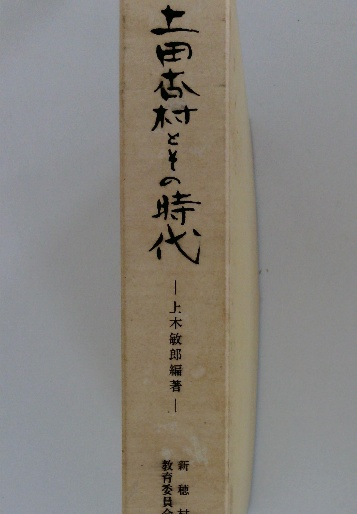 土田杏村とその時代
―上木敏郎編著―
新穂村
教育委員会